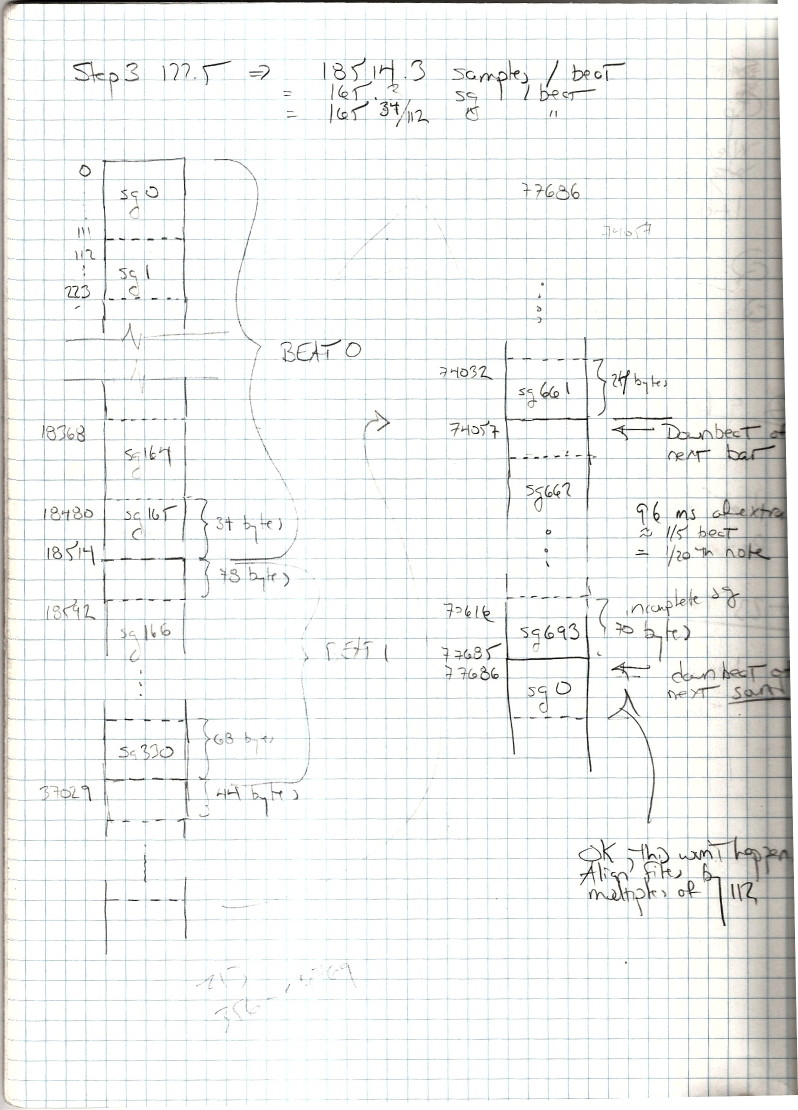 Step 3 122.5 ⇒ 18514.3 samples / beat
= 165.2 sg / beat
= 165 34/112 sg "
0
sg 0
111
112
sg 1
223
BEAT 0
18368
sg 164
18480
sg 165
34 bytes
18514
78 bytes
18592
sg 166
BEAT 1
sg 330
68 bytes
37029
44 bytes
77686
74057
74032
sg 661
24 bytes
74057
← Downbeat of
next bar
sg 662
96 ms of extra
≈ 1/5 beat
= 1/20 th note
77616
sg 693
incomplete sg
70 bytes
77685
77686
sg 0
← downbeat of
next
OK, this won't happen
Align files by
multiples of 112